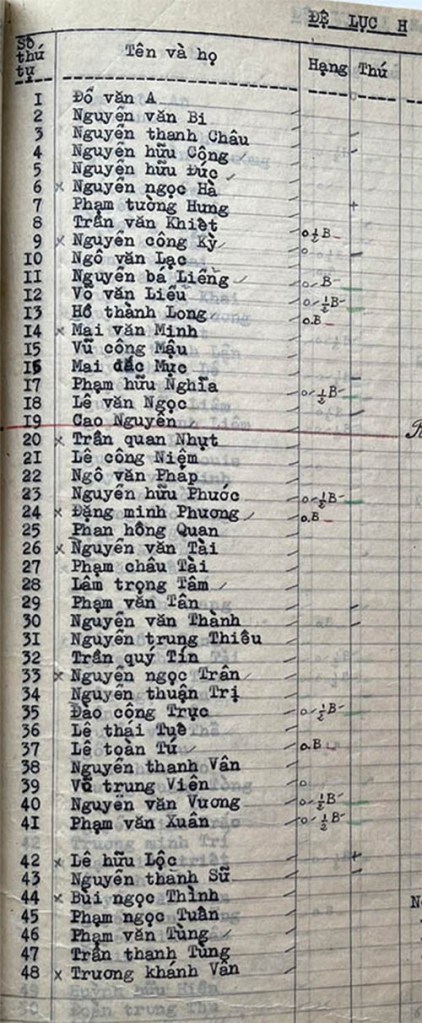 ĐỆ LỤC H
Số thứ tự Tên và họ Hạng Thứ
1 Đổ văn A
2 Nguyễn văn Bi
3 Nguyễn thanh Châu
4 Nguyễn hữu Công
5 Nguyễn hữu Đức
6 x Nguyễn ngọc Hà
7 Phạm tường Hưng
8 Trần văn Khiết o ½ B
9 x Nguyễn công Kỳ o
10 Ngô văn Lạc
11 Nguyễn bá Liềng o B
12 Võ văn Liễu o ½ B
13 Hồ thành Long o.B
14 x Mai văn Minh
15 Vũ công Mậu
16 Mai đắc Mực
17 Phạm hữu Nghĩa o ½ B
18 Lê văn Ngọc
19 Cao Nguyên
20 x Trần quan Nhựt
21 Lê công Niệm
22 Ngô văn Pháp
23 Nguyễn hữu Phước o ½ B
24 x Đặng minh Phương o.B
25 Phan hồng Quan
26 x Nguyễn văn Tài
27 Phạm châu Tài
28 Lâm trọng Tâm
29 Phạm văn Tân
30 Nguyễn văn Thành
31 Nguyễn trung Thiều
32 Trần quý Tín
33 x Nguyễn ngọc Trân
34 Nguyễn thuận Trị
35 Đào công Trực o ½ B
36 Lê thái Tuệ
37 Lê toàn Tú o.B
38 Nguyễn thanh Vân
39 Võ trung Viên o
40 Nguyễn văn Vương o ½ B
41 Phạm văn Xuân o ½ B
42 x Lê hữu Lộc
43 Nguyễn thành Sữ
44 x Bùi ngọc Thình
45 Phạm ngọc Tuân
46 Phạm văn Tùng
47 Trần thanh Tùng
48 x Trương khánh Vân